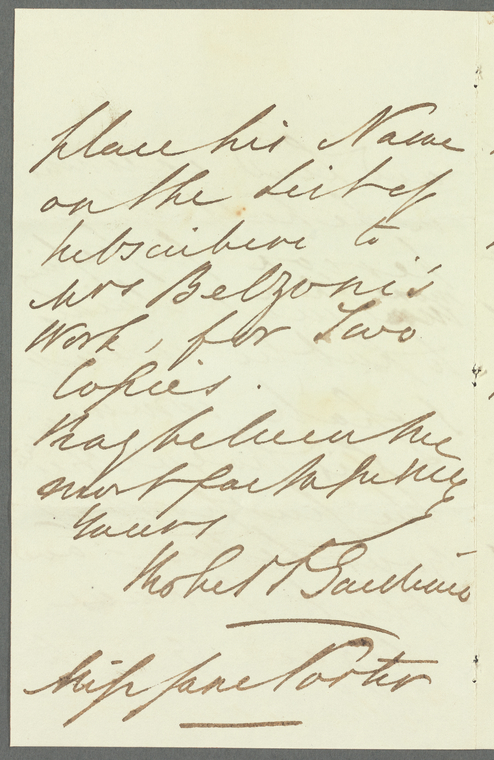 place his Name
on the List of
subscribers to
Mrs Belzoni's
Work, for Two
Copies.
Pray believe me
most faithfully
Yours
Robert
Miss Jane Porter